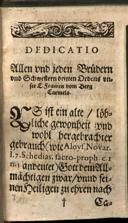 DEDICATIO
Allen vnd jeden Brüdern
vnd Schwestern beeden Ordens vn-
ser L. Frawen vom Berg
Carmelo.
ES ist ein alte / löb-
liche gewonheit vnd
wohl hergebrachter
gebrauch / wie Aloys. Novar.
l. 7. Schedias. sacro-proph. c. 1
andeutet / Gott dem All-
mächtigen zwar / vnd sei-
nen Heiligen zu ehren nach